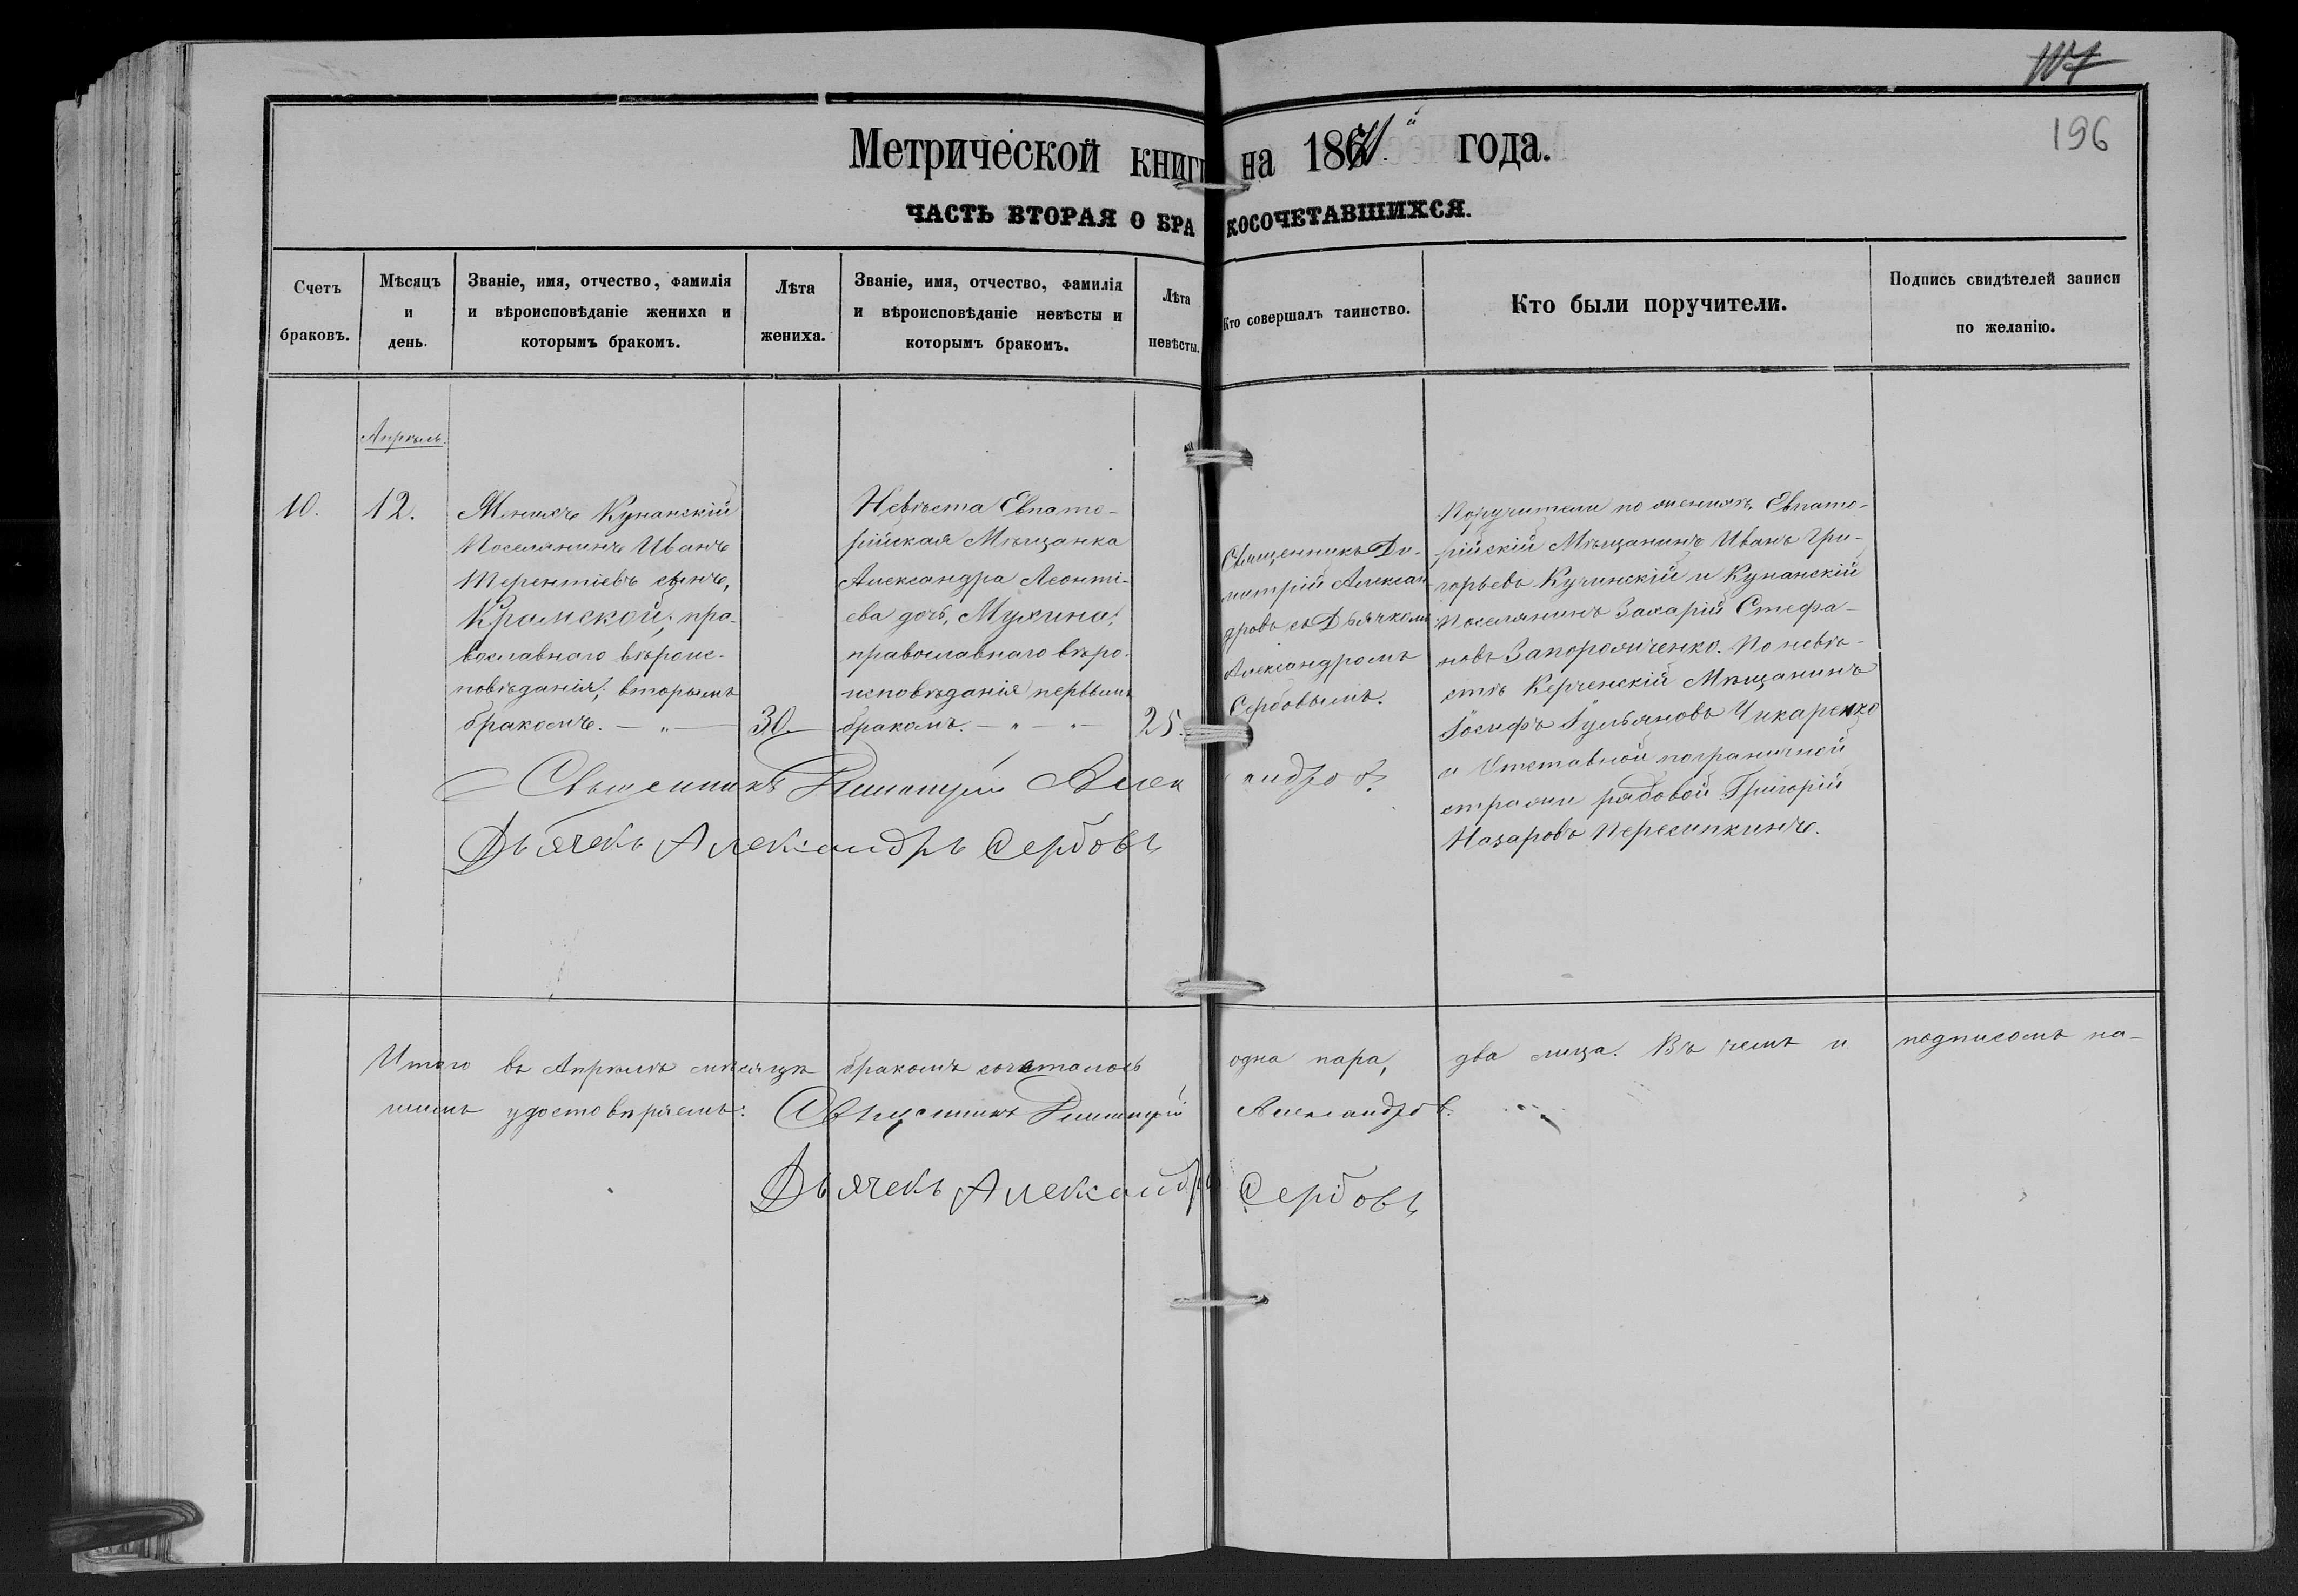 196
Метрической книги на 1871й года.
ЧАСТЬ ВТОРАЯ О БРАКОСОЧЕТАВШИХСЯ.
Счетъ браковъ.
Мѣсяцъ и день.
Званіе, имя, отчество, фамилія
и вѣроисповѣданіе жениха и
которымъ бракомъ.
Лѣта жениха.
Званіе, имя, отчество, фамилія
и вѣроисповѣданіе невѣсты и
которымъ бракомъ.
Лѣта невѣсты.
Кто совершалъ таинство.
Кто были поручители.
Подпись свидѣтелей записи
по желанію.
Апрѣль.
10.
12.
Женихъ Кунанскій
Поселянинъ Иванъ
Терентіевъ сынъ,
Крамской, пра-
вославнаго вѣроис-
повѣданія, вторымъ
бракомъ. — „ —
30.
Невѣста Евпато-
рійская Мѣщанка
Александра Леонті-
ева дочь, Мухина,
православнаго вѣро-
исповѣданія первымъ
бракомъ. — „ —
25.
Священникъ Ди-
митрій Алексан-
дровъ съ Дьячкомъ
Александромъ
Сербовымъ.
Поручители по женихѣ, Евпато-
рійскій Мѣщанинъ Иванъ Гри-
горьевъ Кучинскій и Кунанскій
Поселянинъ Захарій Стефа-
новъ Запорожченко. По невѣ-
стѣ Керченскій Мѣщанинъ
Іосифъ Гульяновъ Чикаренко
и Отставной пограничной
стражи рядовой Григорій
Назаровъ Пересипкинъ.
Священникъ Димитрій Александровъ
Дьячекъ Александръ Сербовъ
Итого въ Апрѣлѣ мѣсяцѣ бракомъ сочеталось одна пара, два лица. Въ чемъ и подписомъ на-
шимъ удостовѣряемъ: Священникъ Димитрій Александровъ.
Дьячекъ Александръ Сербовъ